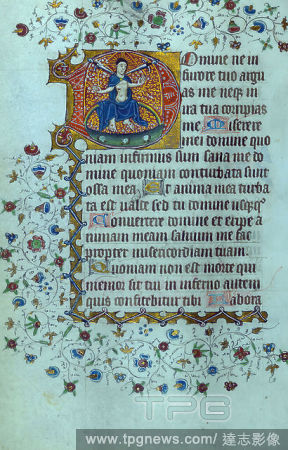 Domine ne in
furore tuo argu
as me neq in
ira tua corripias
me Miserere
mei domine quo
niam infirmus sum sana me do
mine quoniam conturbata sunt
ossa mea Et anima mea turba
ta est valde sed tu domine usqq
Convertere domine et eripe a
nimam meam salvum me fac
propter misericordiam tuam
Quoniam non est in morte qui
memor sit tui in inferno autem
quis confitebitur tibi Labora
TPG
www.tpgnews.com / 達志影像